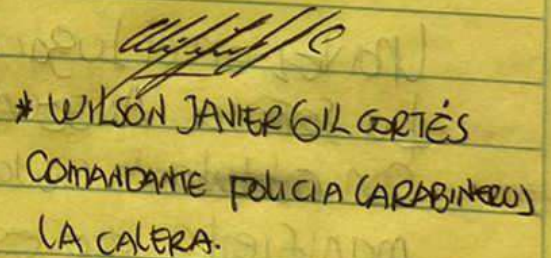 * WILSON JAVIER GIL CORTÉS
COMANDANTE POLICIA CARABINEROS
LA CALERA.